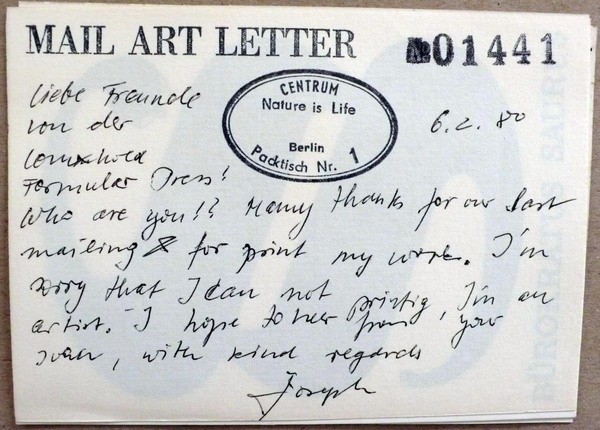 MAIL ART LETTER
№01441
CENTRUM
Nature is Life
Berlin
Packtisch Nr. 1
6.2.80
Liebe Freunde
von der
Formular Press!
Who are you!? Many thanks for our last
mailing & for print my work. I'm
sorry that I can not printig, I'm an
artist. I hope to hear from your
soon, with kind regards
Joseph
BÜRGER SAURUS